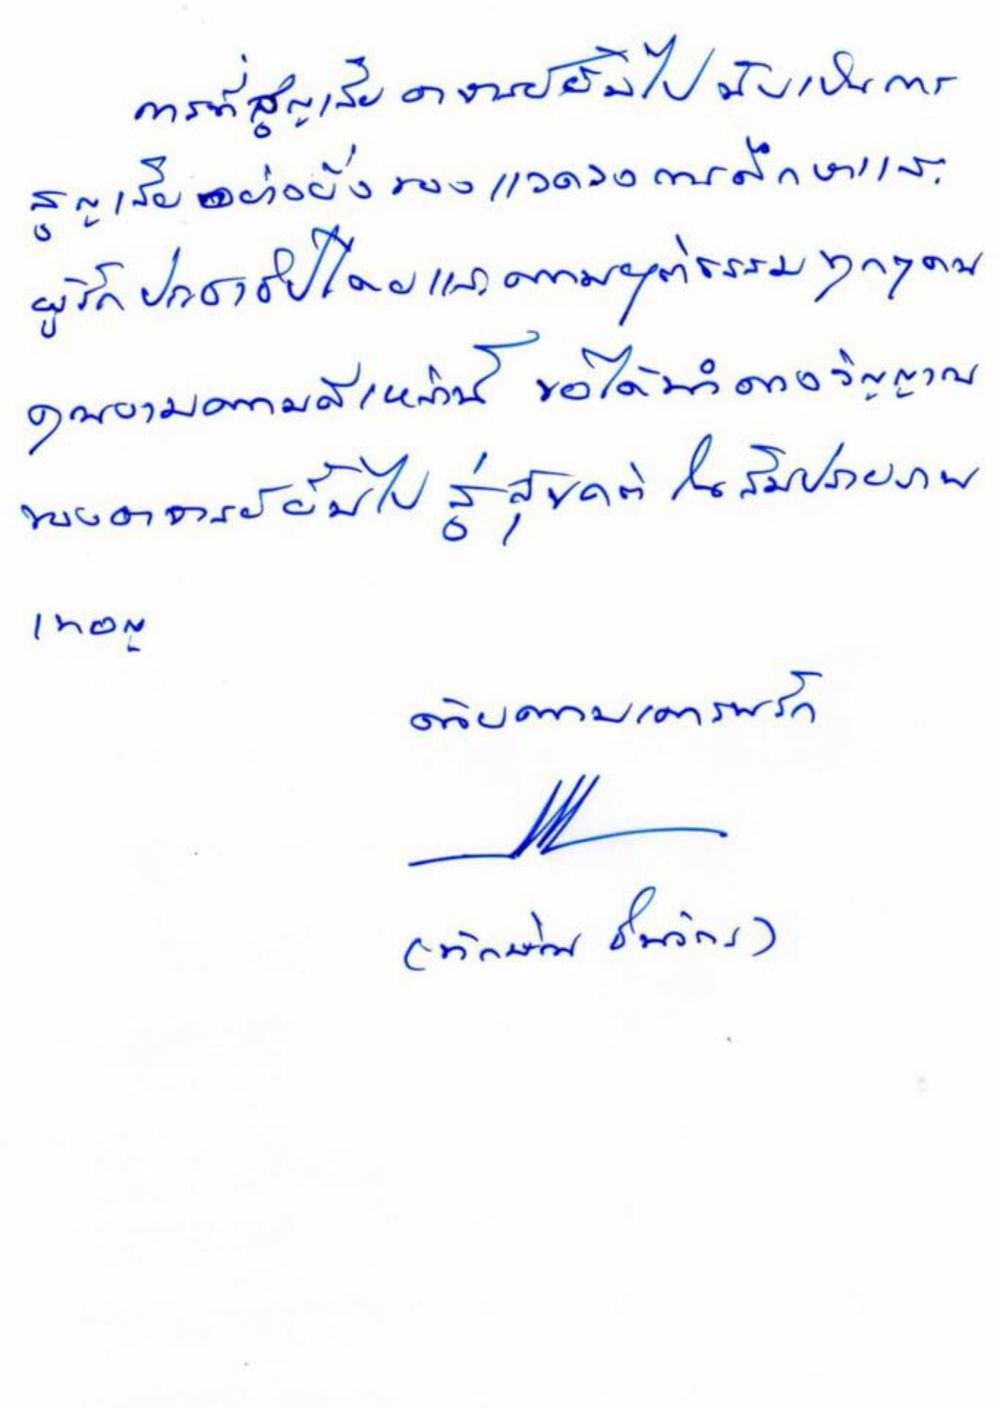 การที่สูญเสีย อาจารย์ยิ้มไป นับเป็นการ
สูญเสียอย่างยิ่ง ของแวดวงการศึกษาและ
ผู้รักประชาธิปไตยและความยุติธรรมทุกๆคน
คุณงามความดีเหล่านี้ ขอได้นำดวงวิญญาณ
ของอาจารย์ยิ้มไป สู่สุขคติ ในสัมปรายภพ
เทอญ
ด้วยความเคารพรัก
(ทักษิณ ชินวัตร)